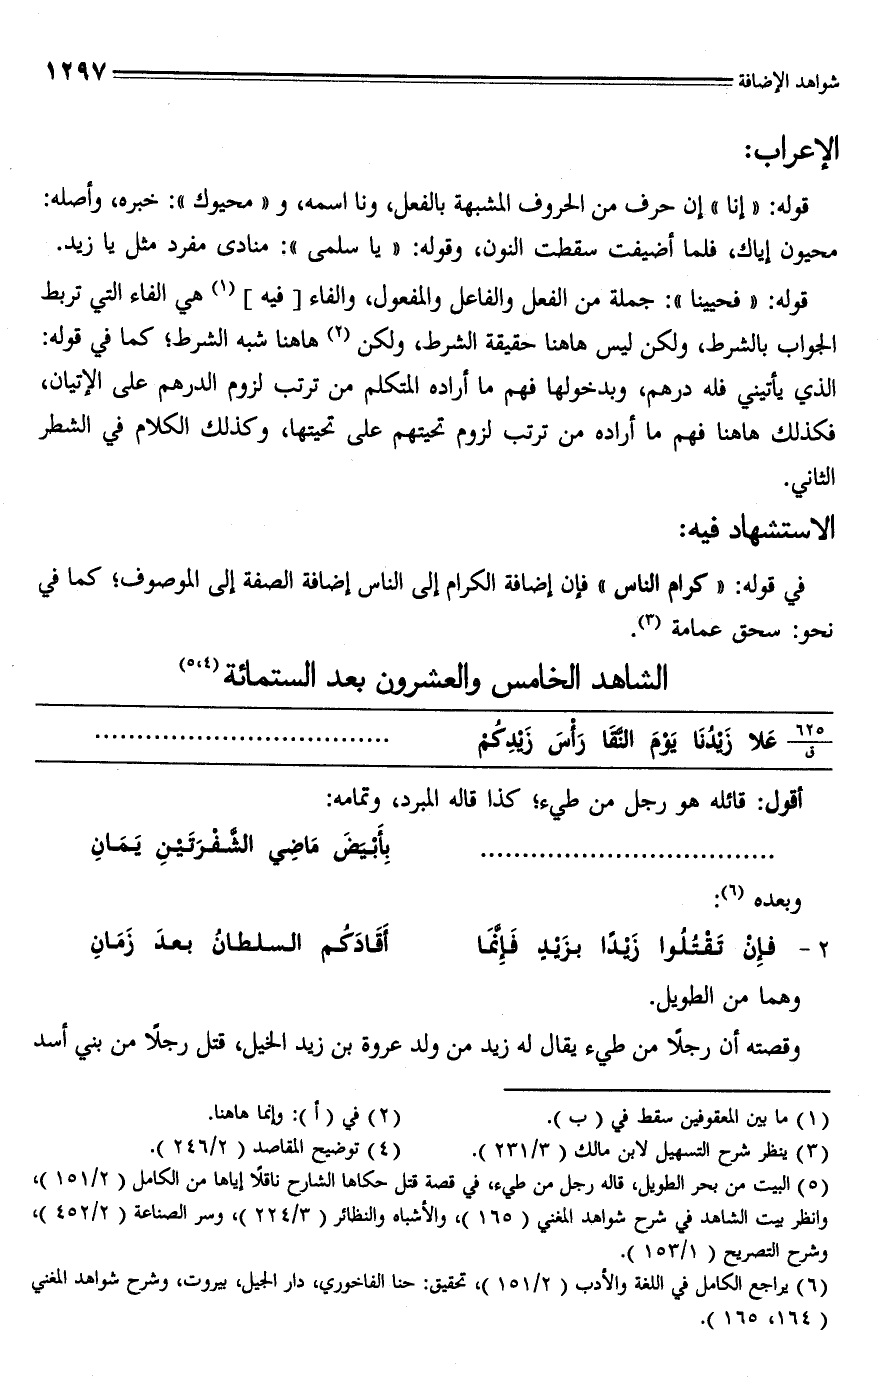 شواهد الإضافة ١٢٩٧
الإعراب:
قوله: « إنا » إن حرف من الحروف المشبهة بالفعل، ونا اسمه، و « محيوك »: خبره، وأصله:
محيون إياك، فلما أضيفت سقطت النون، وقوله: « يا سلمى »: منادى مفرد مثل يا زيد.
قوله: « فحيينا »: جملة من الفعل والفاعل والمفعول، والفاء [ فيه ] (١) هي الفاء التي تربط
الجواب بالشرط، ولكن ليس هاهنا حقيقة الشرط، ولكن (٢) هاهنا شبه الشرط؛ كما في قوله:
الذي يأتيني فله درهم، وبدخولها فهم ما أراده المتكلم من ترتب لزوم الدرهم على الإتيان،
فكذلك هاهنا فهم ما أراده من ترتب لزوم تحيتهم على تحيتها، وكذلك الكلام في الشطر
الثاني.
الاستشهاد فيه:
في قوله: « كرام الناس » فإن إضافة الكرام إلى الناس إضافة الصفة إلى الموصوف؛ كما في
نحو: سحق عمامة (٣).
الشاهد الخامس والعشرون بعد الستمائة (٤،٥)
٦٢٥/ق عَلا زَيْدُنَا يَوْمَ النَّقَا رَأْسَ زَيْدِكُمْ ..................................
أقول: قائله هو رجل من طيء؛ كذا قاله المبرد، وتمامه:
.................................. بِأَبْيَضَ مَاضِي الشَّفْرَتَيْنِ يَمَانِ
وبعده (٦):
٢ - فإِنْ تَقْتُلُوا زَيْدًا بزَيْدٍ فَإِنَّمَا أَقَادَكُم السلطانُ بعدَ زَمَانِ
وهما من الطويل.
وقصته أن رجلًا من طيء يقال له زيد من ولد عروة بن زيد الخيل، قتل رجلًا من بني أسد
(١) ما بين المعقوفين سقط في ( ب ). (٢) في ( أ ): وإنما هاهنا.
(٣) ينظر شرح التسهيل لابن مالك ( ٢٣١/٣ ). (٤) توضيح المقاصد ( ٢٤٦/٢ ).
(٥) البيت من بحر الطويل، قاله رجل من طيء، في قصة قتل حكاها الشارح ناقلًا إياها من الكامل ( ١٥١/٢ )،
وانظر بيت الشاهد في شرح شواهد المغني ( ١٦٥ )، والأشباه والنظائر ( ٢٢٤/٣ )، وسر الصناعة ( ٤٥٢/٢ )،
وشرح التصريح ( ١٥٣/١ ).
(٦) يراجع الكامل في اللغة والأدب ( ١٥١/٢ )، تحقيق: حنا الفاخوري، دار الجيل، بيروت، وشرح شواهد المغني
( ١٦٤، ١٦٥ ).